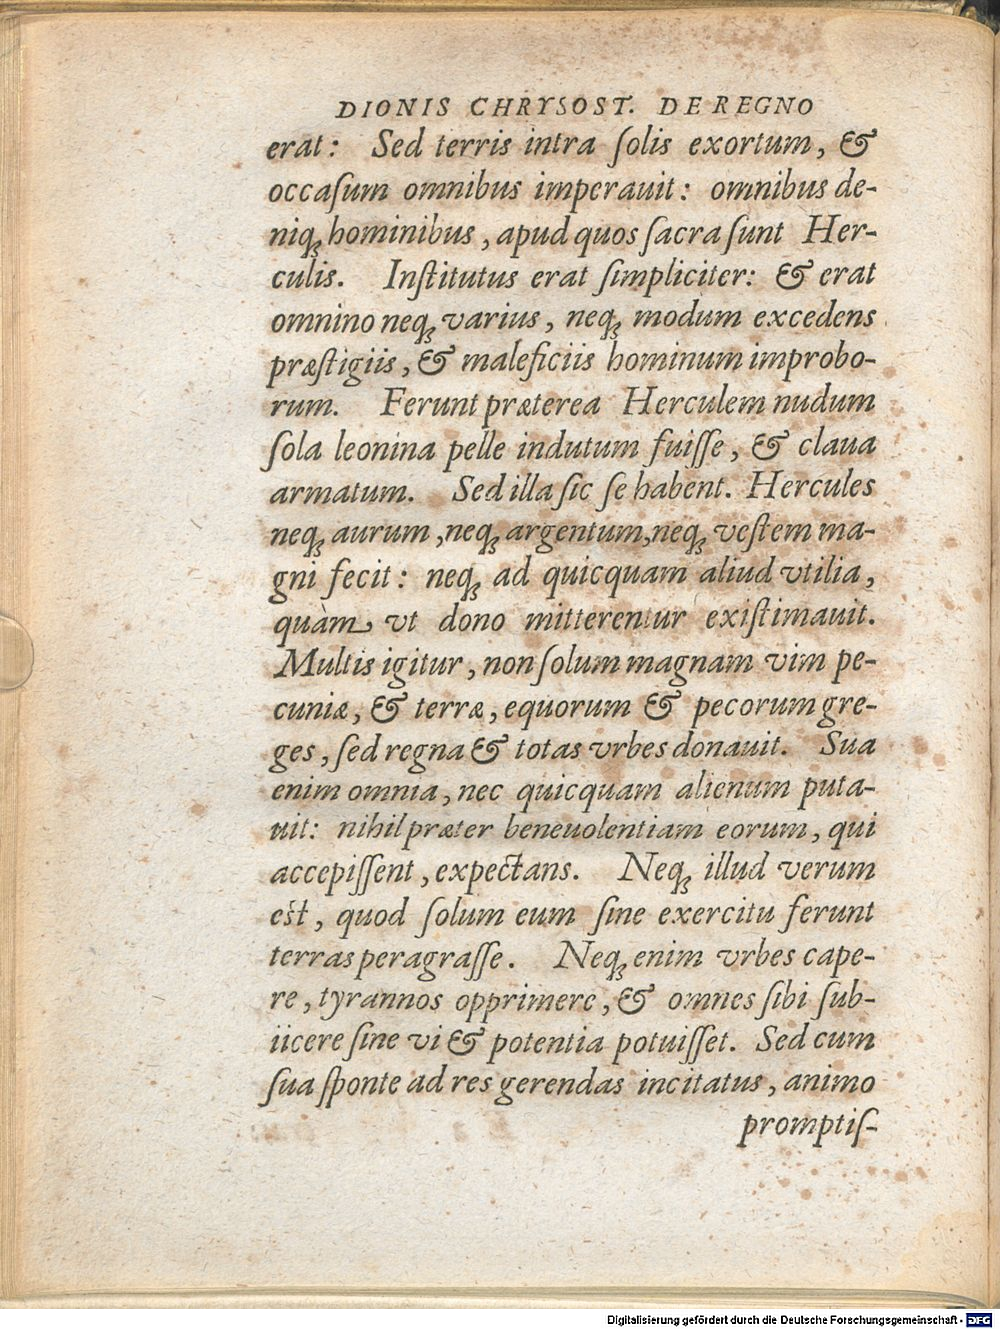 DIONIS CHRYSOST. DE REGNO
erat: Sed terris intra ſolis exortum, &
occaſum omnibus imperauit: omnibus de-
niq; hominibus, apud quos ſacra ſunt Her-
culis. Inſtitutus erat ſimpliciter: & erat
omnino neq; varius, neq; modum excedens
præſtigiis, & maleficiis hominum improbo-
rum. Ferunt præterea Herculem nudum
ſola leonina pelle indutum fuiſſe, & claua
armatum. Sed illa ſic ſe habent. Hercules
neq; aurum, neq; argentum, neq; veſtem ma-
gni fecit: neq; ad quicquam aliud vtilia,
quàm vt dono mitterentur exiſtimauit.
Multis igitur, non ſolum magnam vim pe-
cuniæ, & terræ, equorum & pecorum gre-
ges, ſed regna & totas vrbes donauit. Sua
enim omnia, nec quicquam alienum puta-
uit: nihil præter beneuolentiam eorum, qui
accepiſſent, expectans. Neq; illud verum
eſt, quod ſolum eum ſine exercitu ferunt
terras peragraſſe. Neq; enim vrbes cape-
re, tyrannos opprimere, & omnes ſibi ſub-
iicere ſine vi & potentia potuiſſet. Sed cum
ſua ſponte ad res gerendas incitatus, animo
promptiſ-
Digitalisierung gefördert durch die Deutsche Forschungsgemeinschaft - DFG